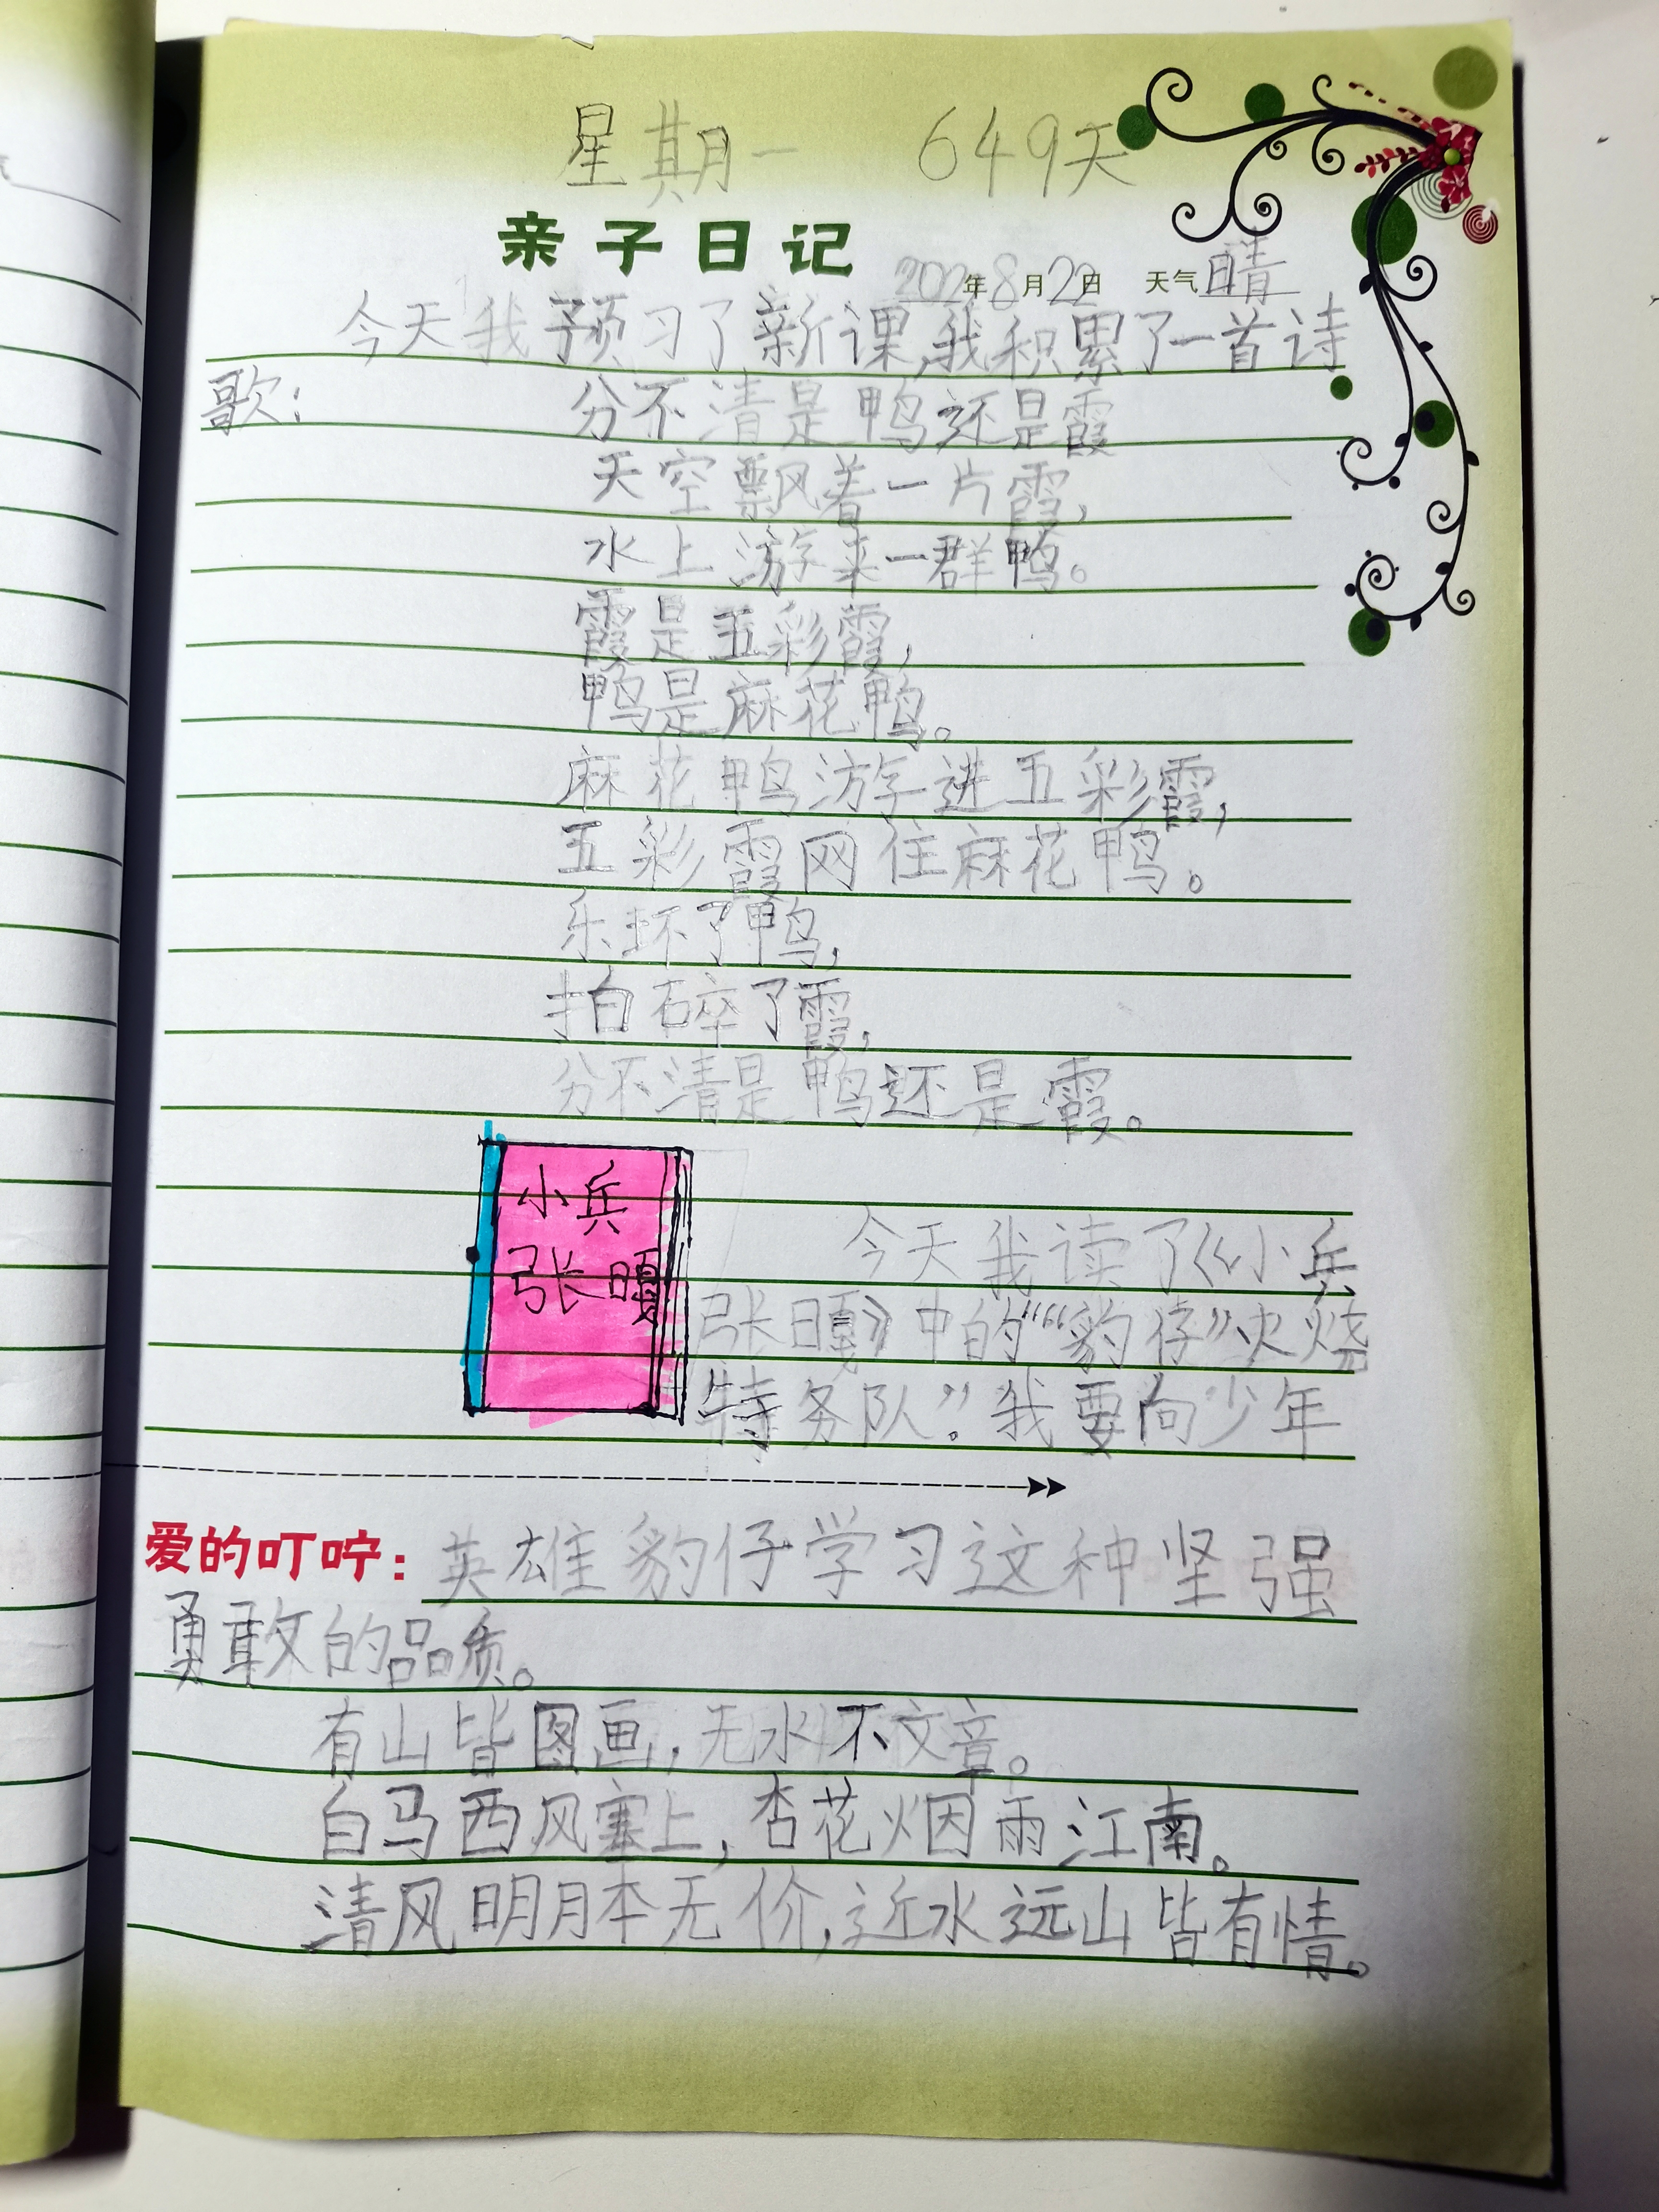 星期一 649天
亲子日记 2022年8月22日 天气 晴
今天我预习了新课,我积累了一首诗
歌:
分不清是鸭还是霞
天空飘着一片霞,
水上游来一群鸭。
霞是五彩霞,
鸭是麻花鸭。
麻花鸭游进五彩霞,
五彩霞网住麻花鸭。
乐坏了鸭,
拍碎了霞,
分不清是鸭还是霞。
小兵
张嘎
今天我读了《小兵
张嘎》中的““豹仔”火烧
特务队”。我要向少年
爱的叮咛:英雄豹仔学习这种坚强
勇敢的品质。
有山皆图画,无水不文章。
白马西风塞上,杏花烟雨江南。
清风明月本无价,近水远山皆有情。